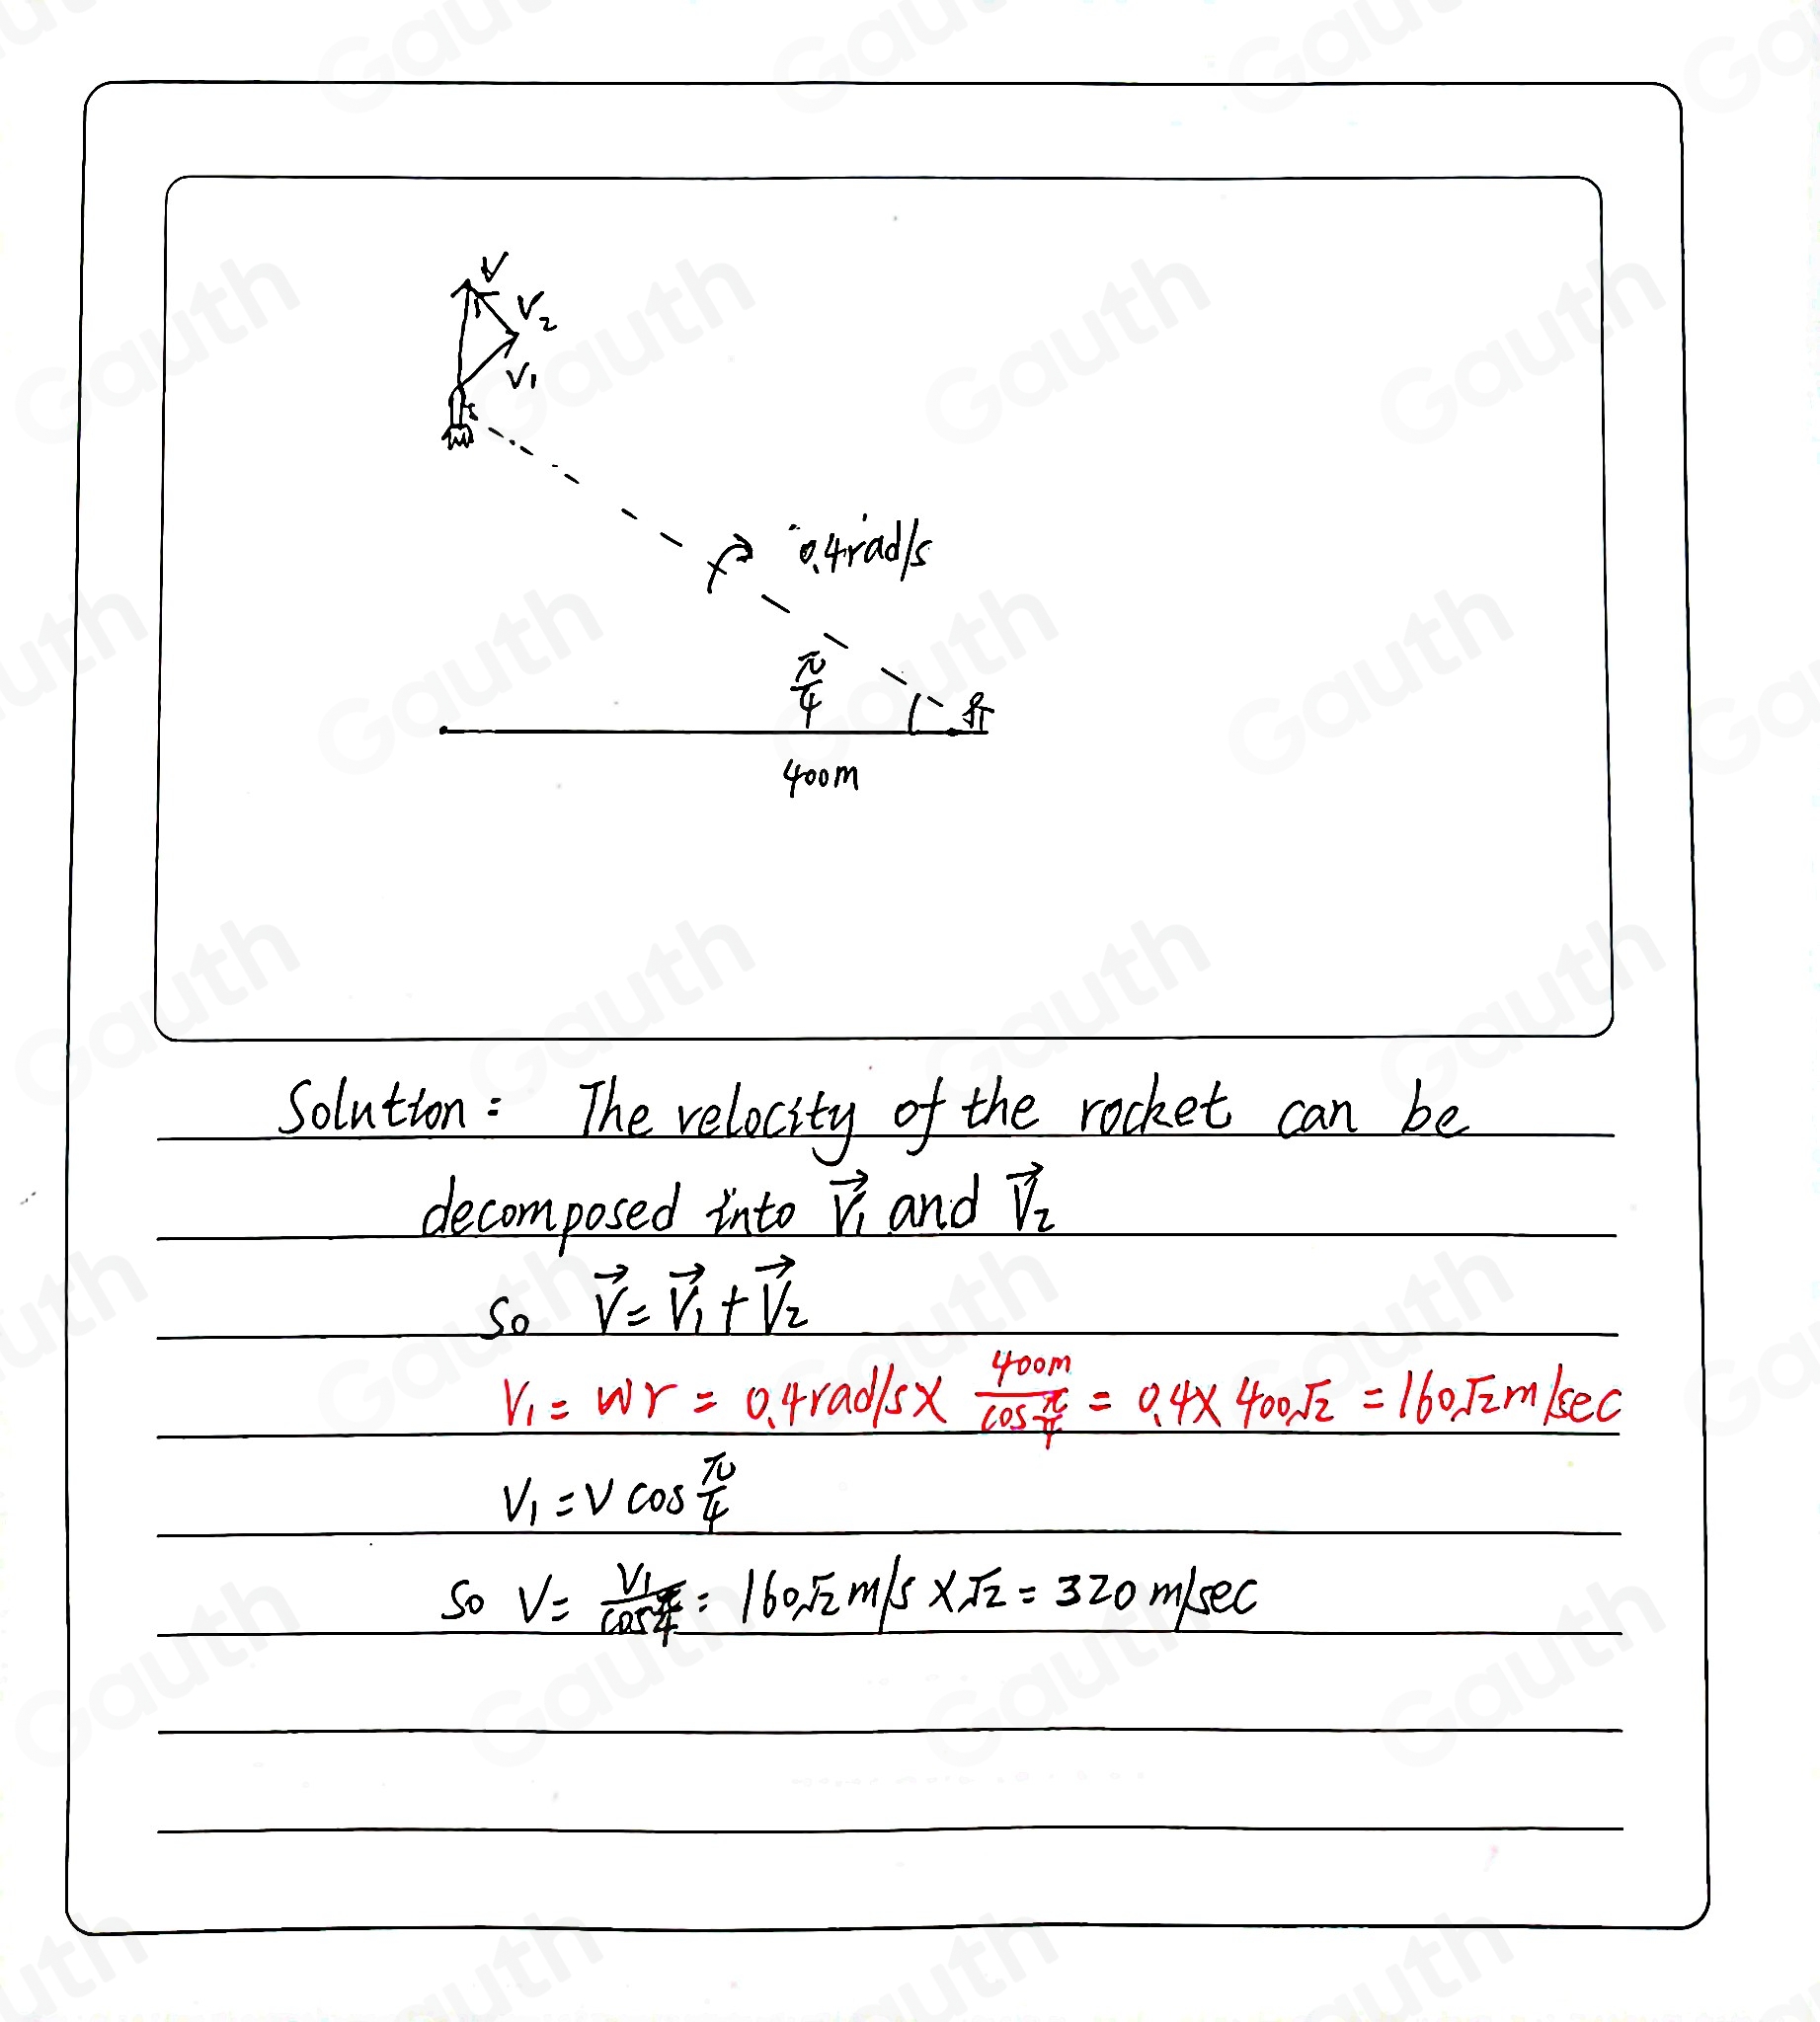 V
V₂
V₁
0.4rad/s
π/4
400m
Solution: The velocity of the rocket can be
decomposed into V⃗₁ and V⃗₂
So V⃗ = V⃗₁ + V⃗₂
V₁ = wr = 0.4rad/s × 400m/cos π/4 = 0.4 × 400√2 = 160√2 m/sec
V₁ = V cos π/4
So V = V₁/cos π/4 = 160√2 m/s × √2 = 320 m/sec
Gauth